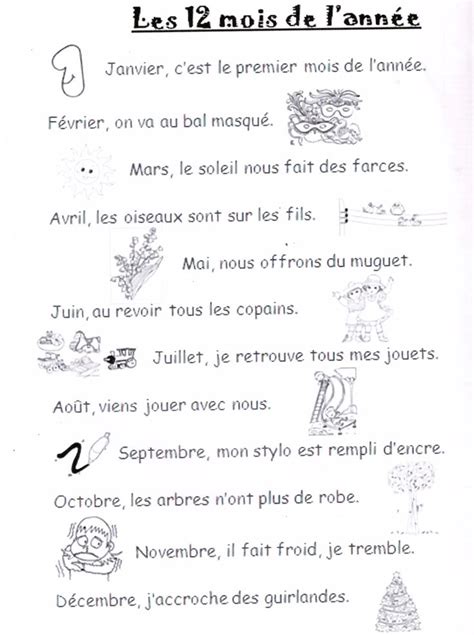 Les 12 mois de l'année
Janvier, c'est le premier mois de l'année.
Février, on va au bal masqué.
Mars, le soleil nous fait des farces.
Avril, les oiseaux sont sur les fils.
Mai, nous offrons du muguet.
Juin, au revoir tous les copains.
Juillet, je retrouve tous mes jouets.
Août, viens jouer avec nous.
Septembre, mon stylo est rempli d'encre.
Octobre, les arbres n'ont plus de robe.
Novembre, il fait froid, je tremble.
Décembre, j'accroche des guirlandes.